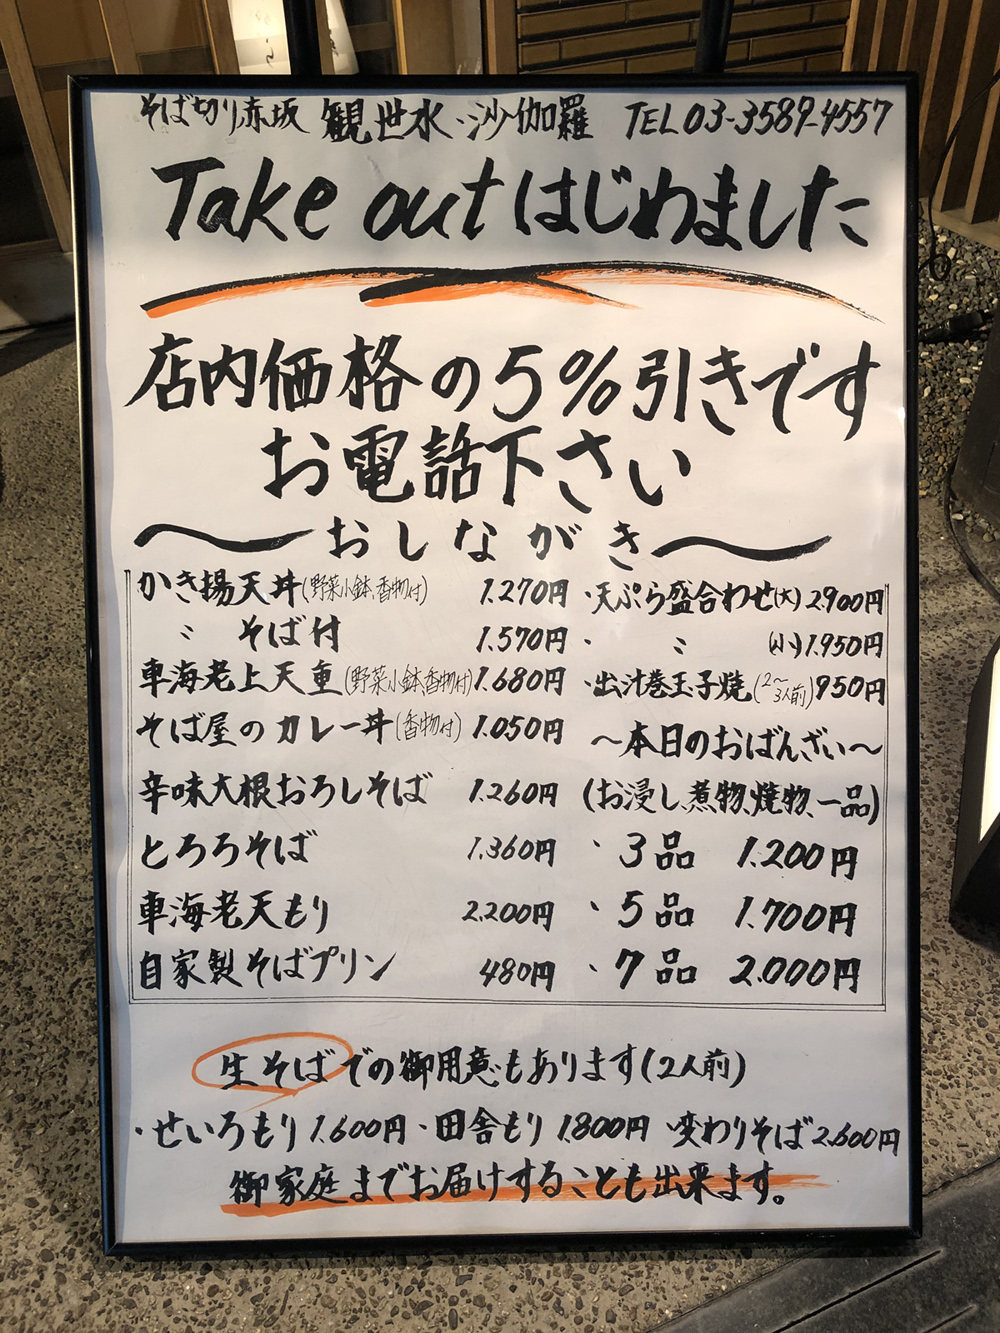 そば切り赤坂 観世水・沙伽羅 TEL03-3589-4557
Take outはじめました
店内価格の5%引きです
お電話下さい
〜おしながき〜
かき揚天丼(野菜小鉢、香物付) 1.270円
〃 そば付 1.570円
車海老上天重(野菜小鉢、香物付) 1.680円
そば屋のカレー丼(香物付) 1.050円
辛味大根おろしそば 1.260円
とろろそば 1.360円
車海老天もり 2.200円
自家製そばプリン 480円
・天ぷら盛合わせ(大) 2.900円
・ 〃 (小) 1.950円
・出汁巻玉子焼(2〜3人前) 950円
〜本日のおばんざい〜
(お浸し、煮物、焼物、一品)
・3品 1.200円
・5品 1.700円
・7品 2.000円
生そばでの御用意もあります(2人前)
・せいろもり 1.600円・田舎もり 1.800円・変わりそば 2.600円
御家庭までお届けすることも出来ます。